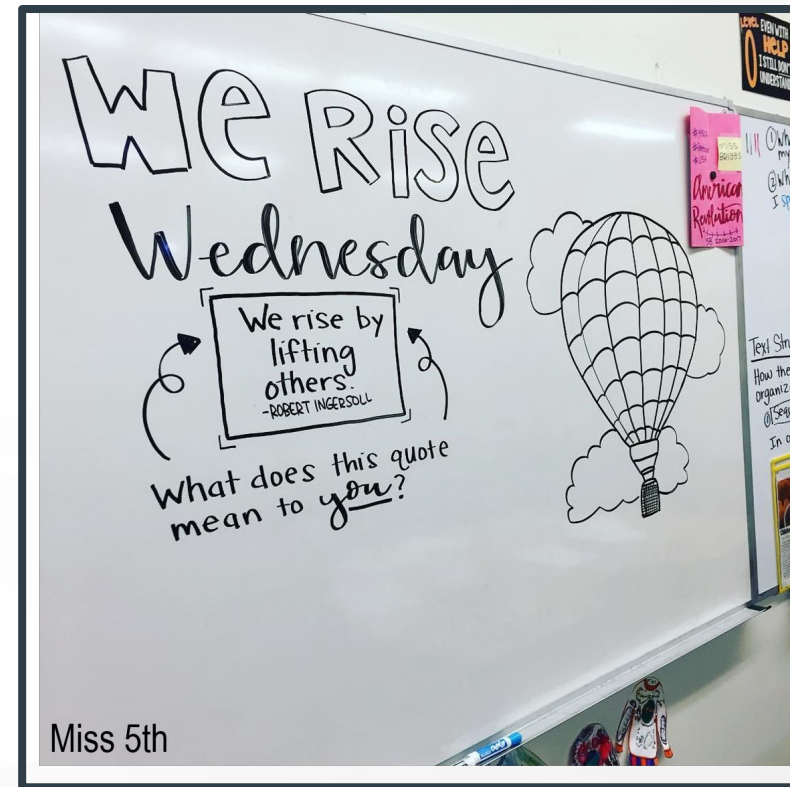 We RiSe
Wednesday
We rise by
lifting
others.
-ROBERT INGERSOLL
What does this quote
mean to you?
LEVEL
0
EVEN WITH
HELP
I STILL DON'T
UNDERSTAND
MISS
American
Revolution
2016-2017
①
my
②
I
Text
How the
In
Miss 5th